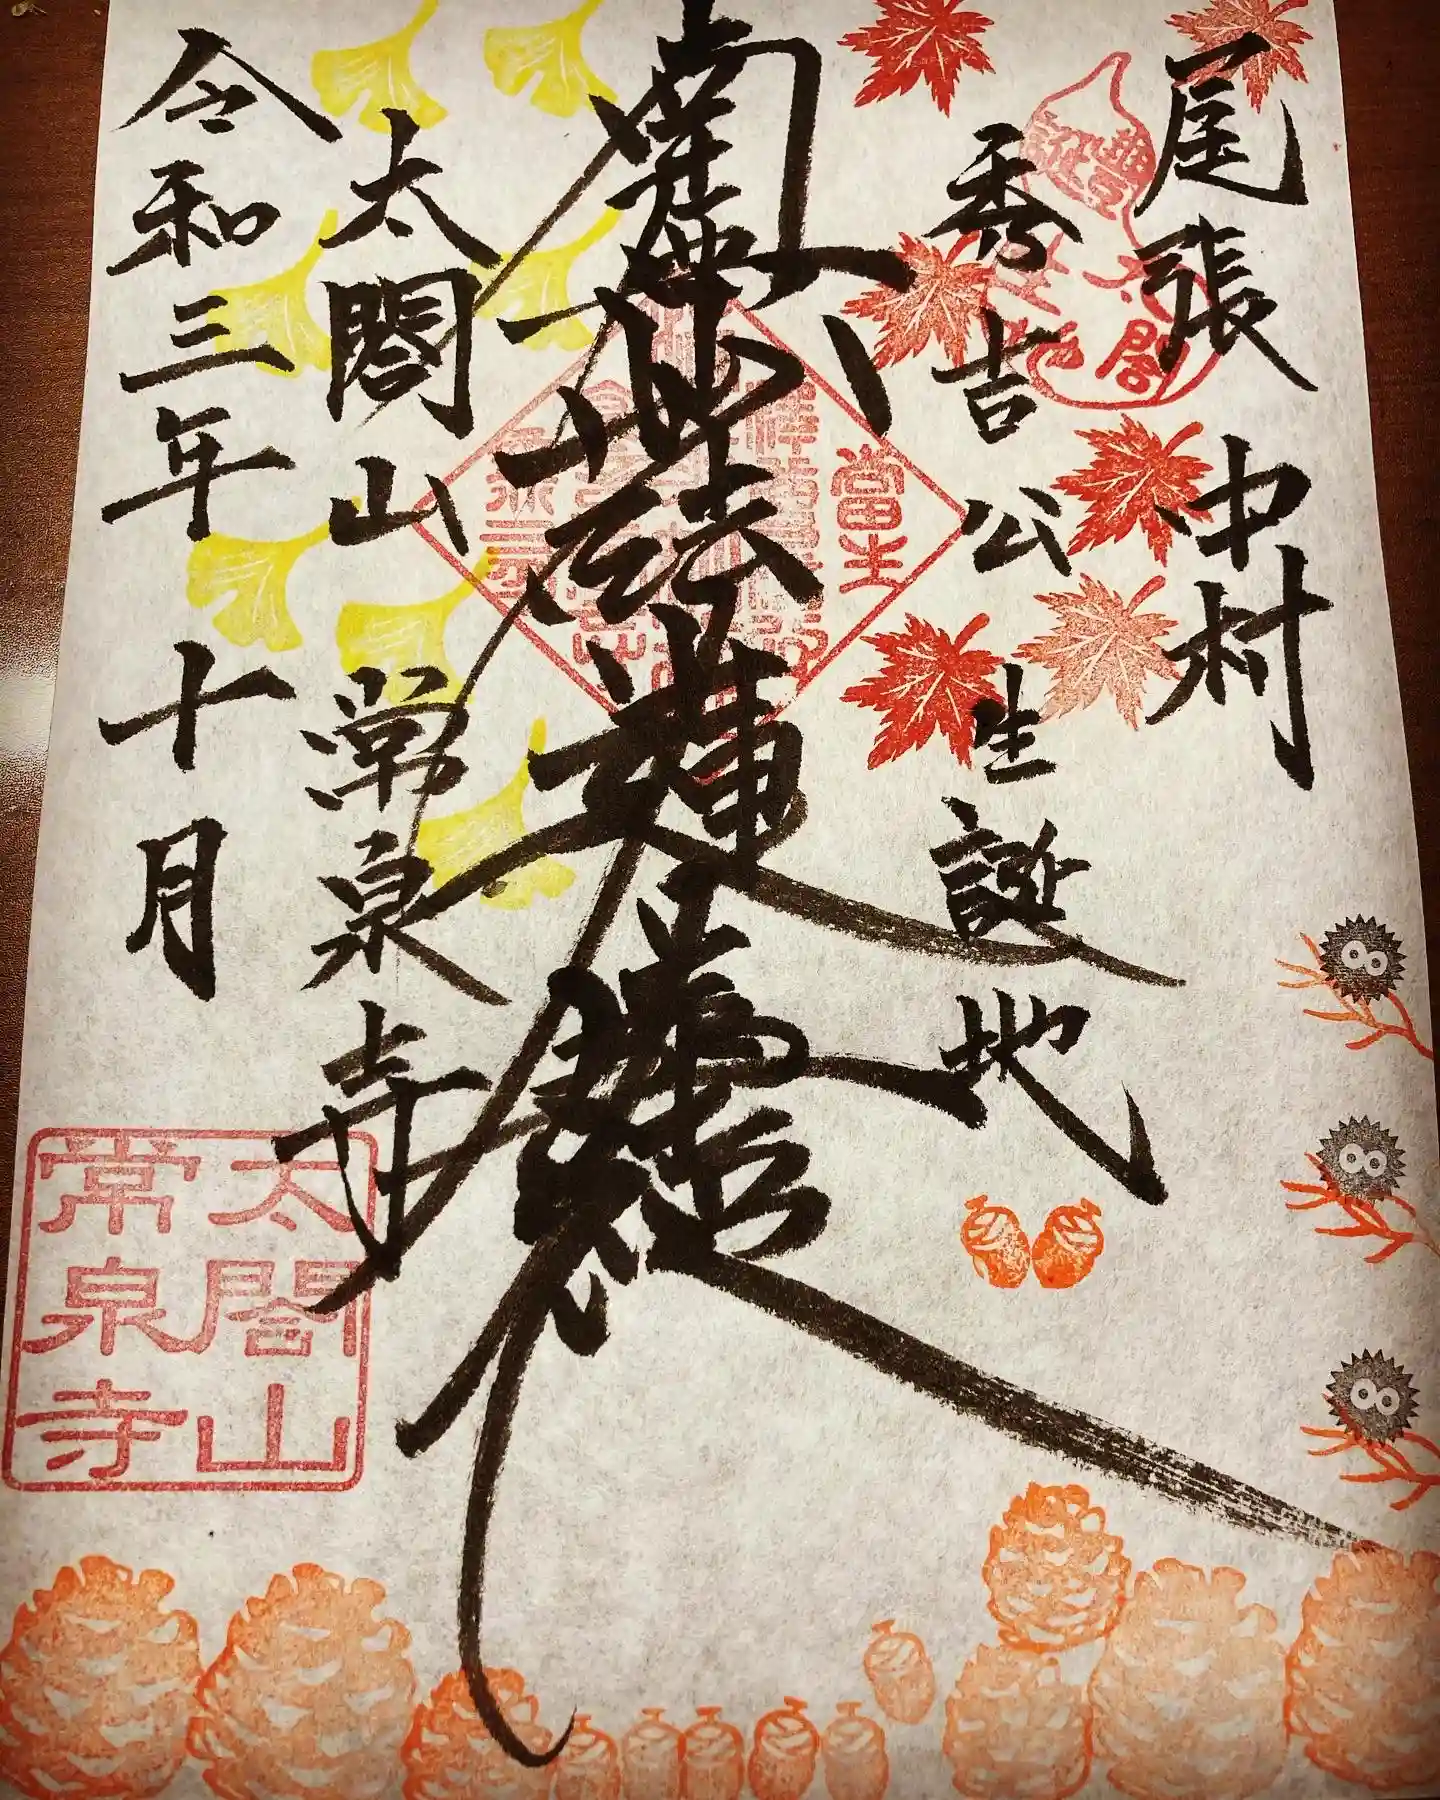 尾張中村
秀吉公生誕地
南無妙法蓮華経
太閤山常泉寺
令和三年十月
豊
誕
太閤
生地
當
生
太閤山
常泉寺